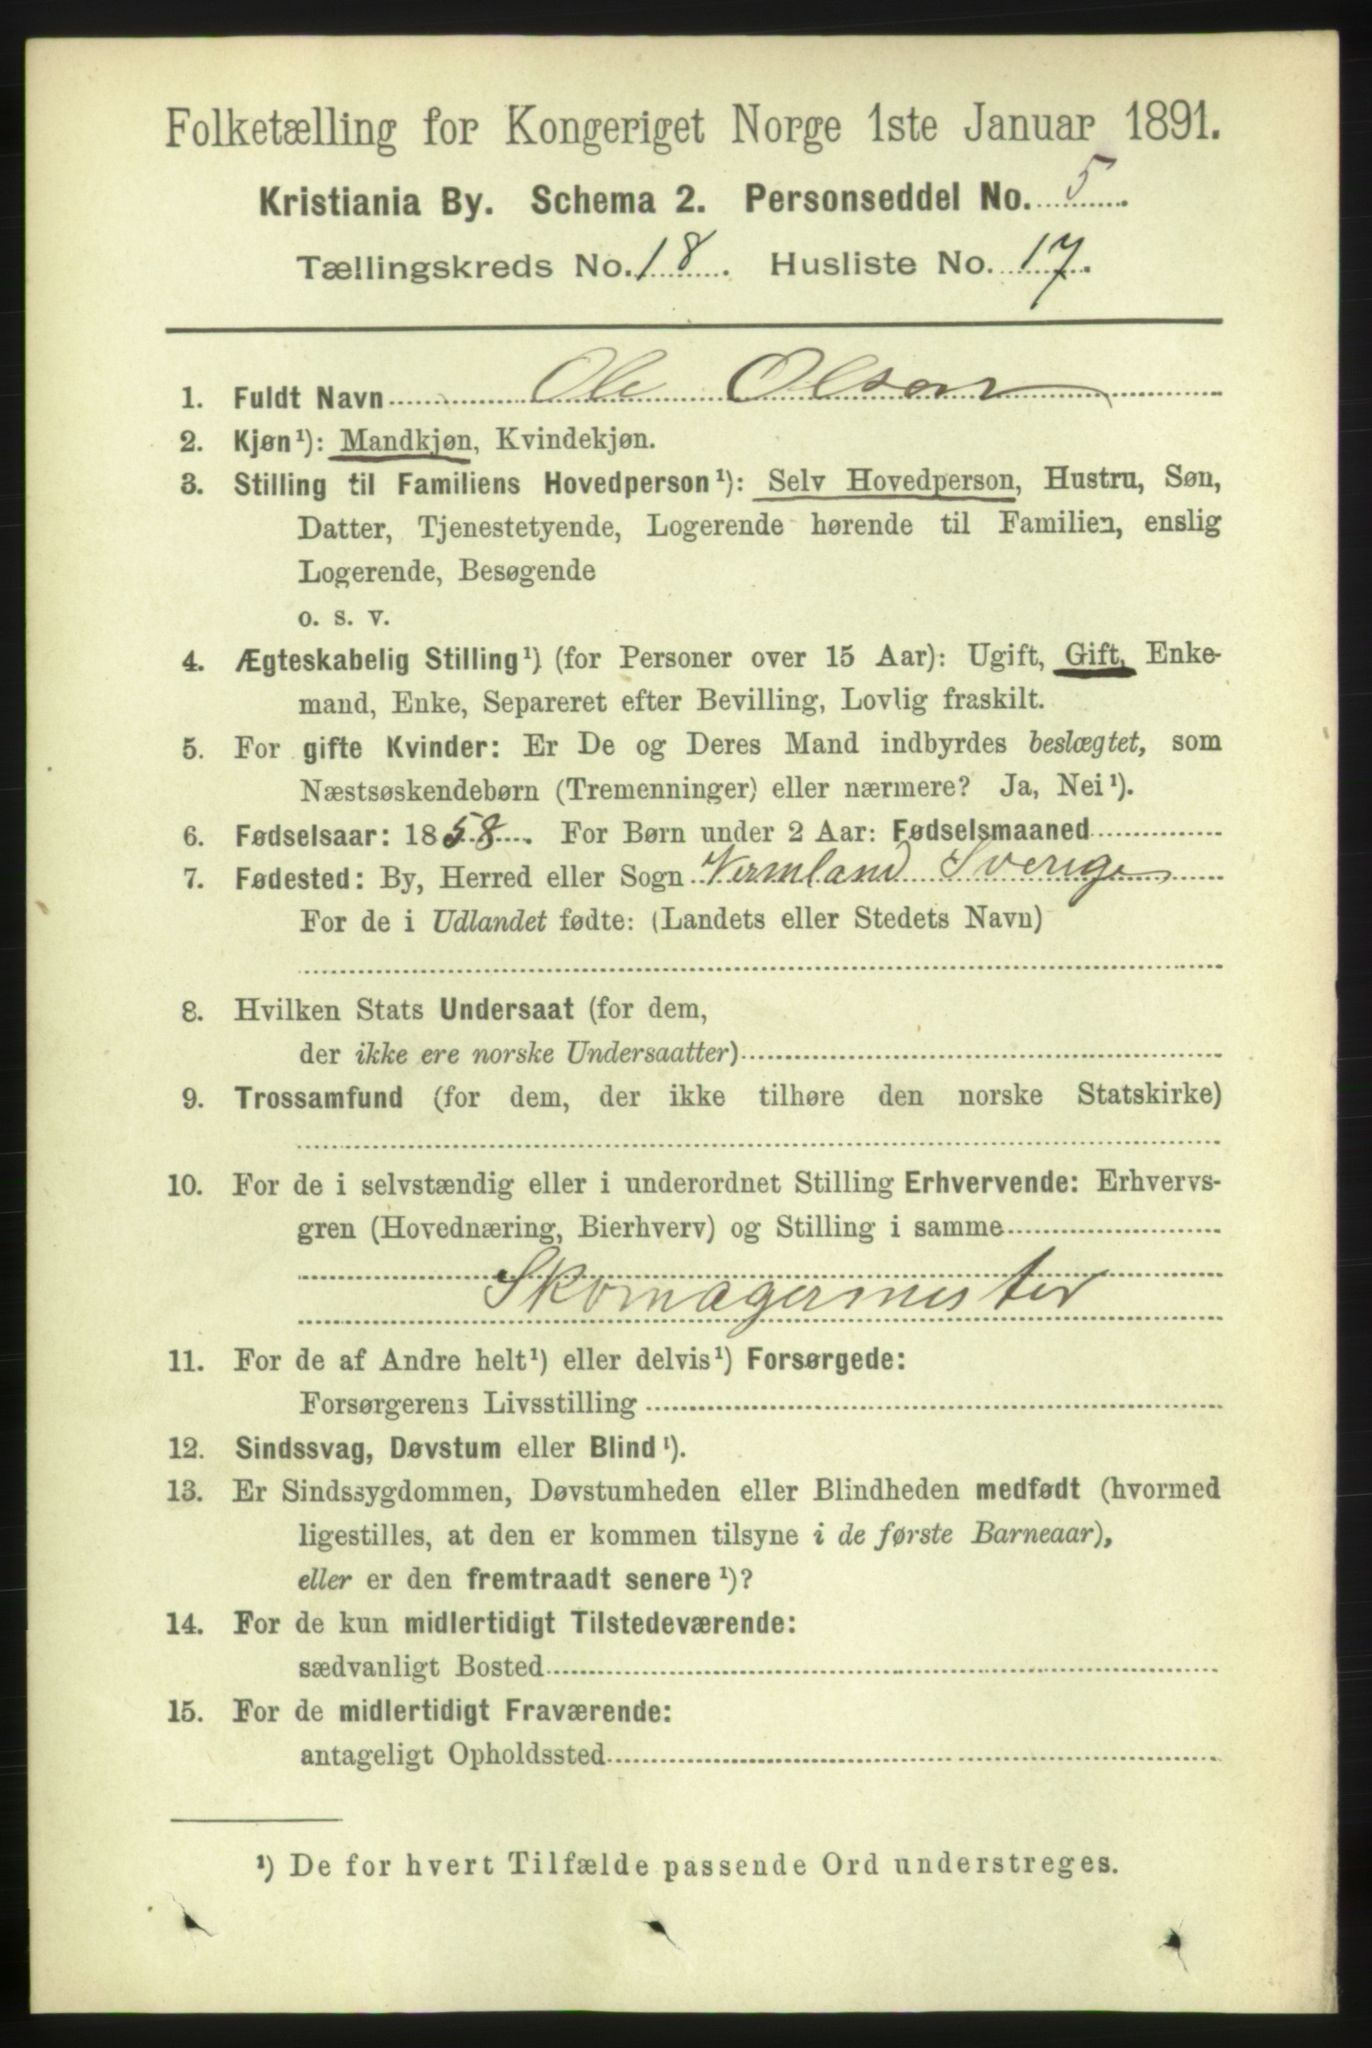 Folketælling for Kongeriget Norge 1ste Januar 1891.
Kristiania By. Schema 2. Personseddel No. 5.
Tællingskreds No. 18. Husliste No. 17.
1. Fuldt Navn Ole Olson
2. Kjøn¹): Mandkjøn, Kvindekjøn.
3. Stilling til Familiens Hovedperson¹): Selv Hovedperson, Hustru, Søn,
Datter, Tjenestetyende, Logerende hørende til Familien, enslig
Logerende, Besøgende
o. s. v.
4. Ægteskabelig Stilling¹) (for Personer over 15 Aar): Ugift, Gift, Enke-
mand, Enke, Separeret efter Bevilling, Lovlig fraskilt.
5. For gifte Kvinder: Er De og Deres Mand indbyrdes beslægtet, som
Næstsøskendebørn (Tremenninger) eller nærmere? Ja, Nei¹).
6. Fødselsaar: 1858. For Børn under 2 Aar: Fødselsmaaned
7. Fødested: By, Herred eller Sogn Vermland Sverige
For de i Udlandet fødte: (Landets eller Stedets Navn)
8. Hvilken Stats Undersaat (for dem,
der ikke ere norske Undersaatter)
9. Trossamfund (for dem, der ikke tilhøre den norske Statskirke)
10. For de i selvstændig eller i underordnet Stilling Erhvervende: Erhvervs-
gren (Hovednæring, Bierhverv) og Stilling i samme
Skomagermester
11. For de af Andre helt¹) eller delvis¹) Forsørgede:
Forsørgerens Livsstilling
12. Sindssvag, Døvstum eller Blind¹).
13. Er Sindssygdommen, Døvstumheden eller Blindheden medfødt (hvormed
ligestilles, at den er kommen tilsyne i de første Barneaar),
eller er den fremtraadt senere¹)?
14. For de kun midlertidigt Tilstedeværende:
sædvanligt Bosted
15. For de midlertidigt Fraværende:
antageligt Opholdssted
¹) De for hvert Tilfælde passende Ord understreges.